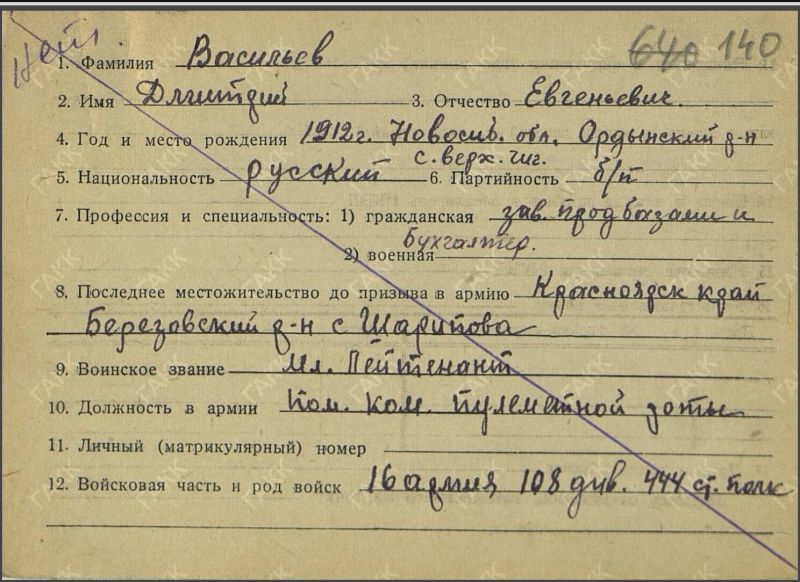 640 140
1. Фамилия Васильев
2. Имя Дмитрий 3. Отчество Евгеньевич.
4. Год и место рождения 1912г. Новосиб. обл. Ордынский р-н
с. верх. чиг.
5. Национальность русский 6. Партийность б/п
7. Профессия и специальность: 1) гражданская зав. продбазами и
Бухгалтер.
2) военная
8. Последнее местожительство до призыва в армию Красноярск край
Березовский р-н с Шарипова
9. Воинское звание Мл. Лейтенант
10. Должность в армии Пом. Ком. пулеметной роты
11. Личный (матрикулярный) номер
12. Войсковая часть и род войск 16 армия 108 див. 444 ст. полк